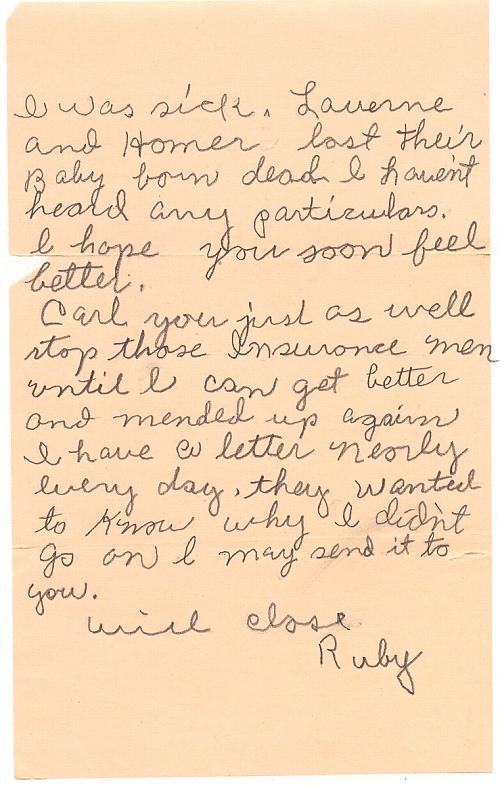 I was sick. Laverne
and Homer lost their
Baby born dead I haven't
heard any particulars.
I hope you soon feel
better.
Carl you just as well
stop those Insurance men
until I can get better
and mended up again
I have a letter nearly
every day, they wanted
to know why I didn't
go on I may send it to
you.
will close
Ruby